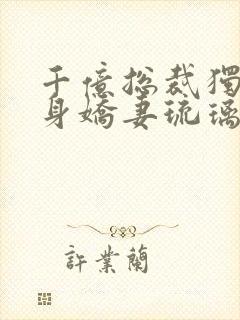 千億總裁獨
身嬌妻琉璃
許業蘭